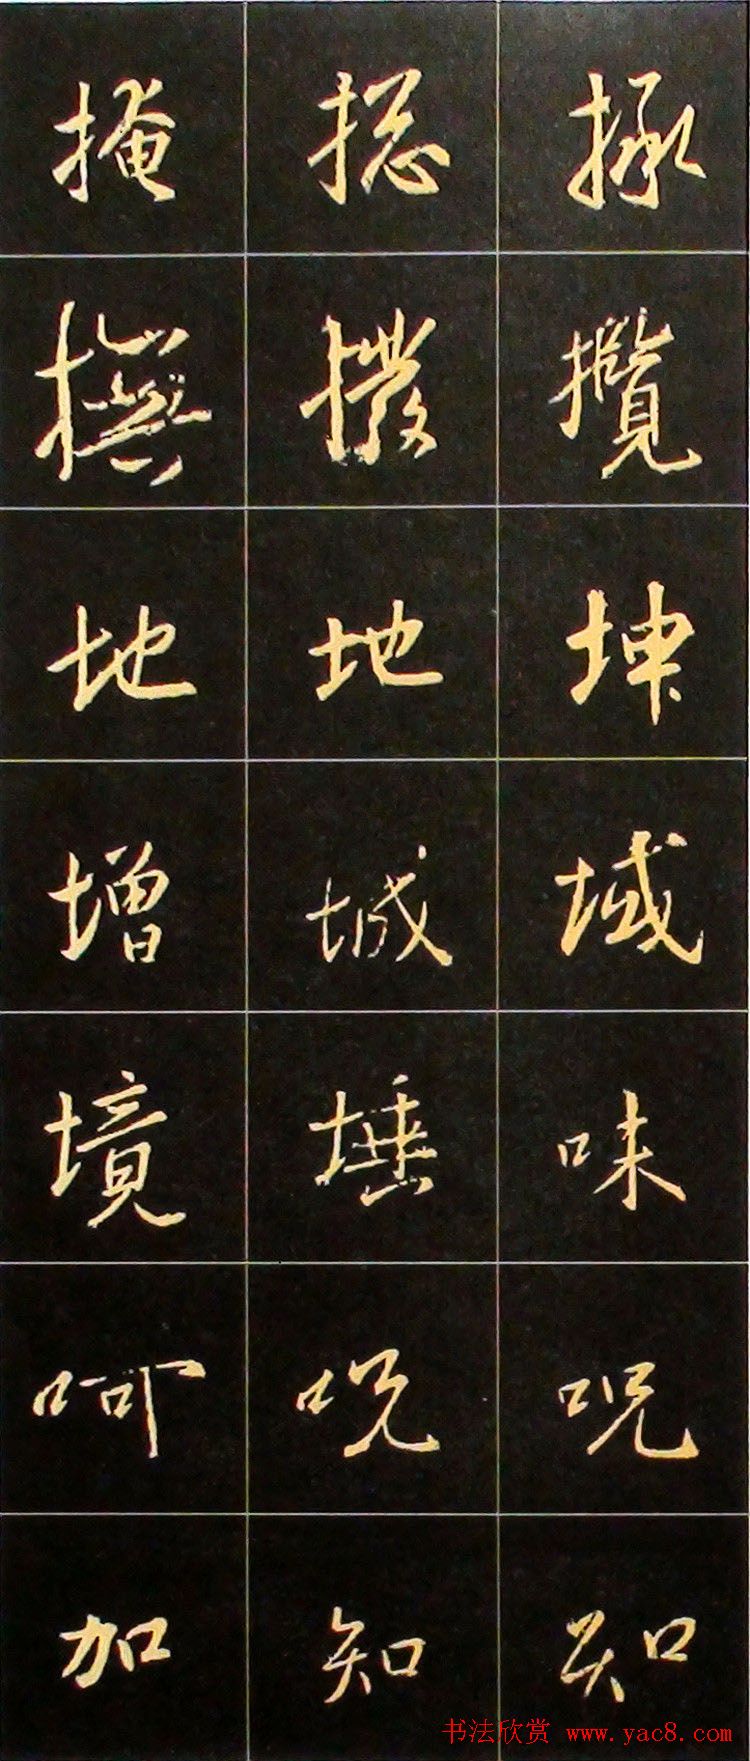 掩 揔 拯
撫 撥 攬
地 地 坤
增 城 域
境 埵 味
呵 呪 呪
加 知 知
书法欣赏 www.yac8.com